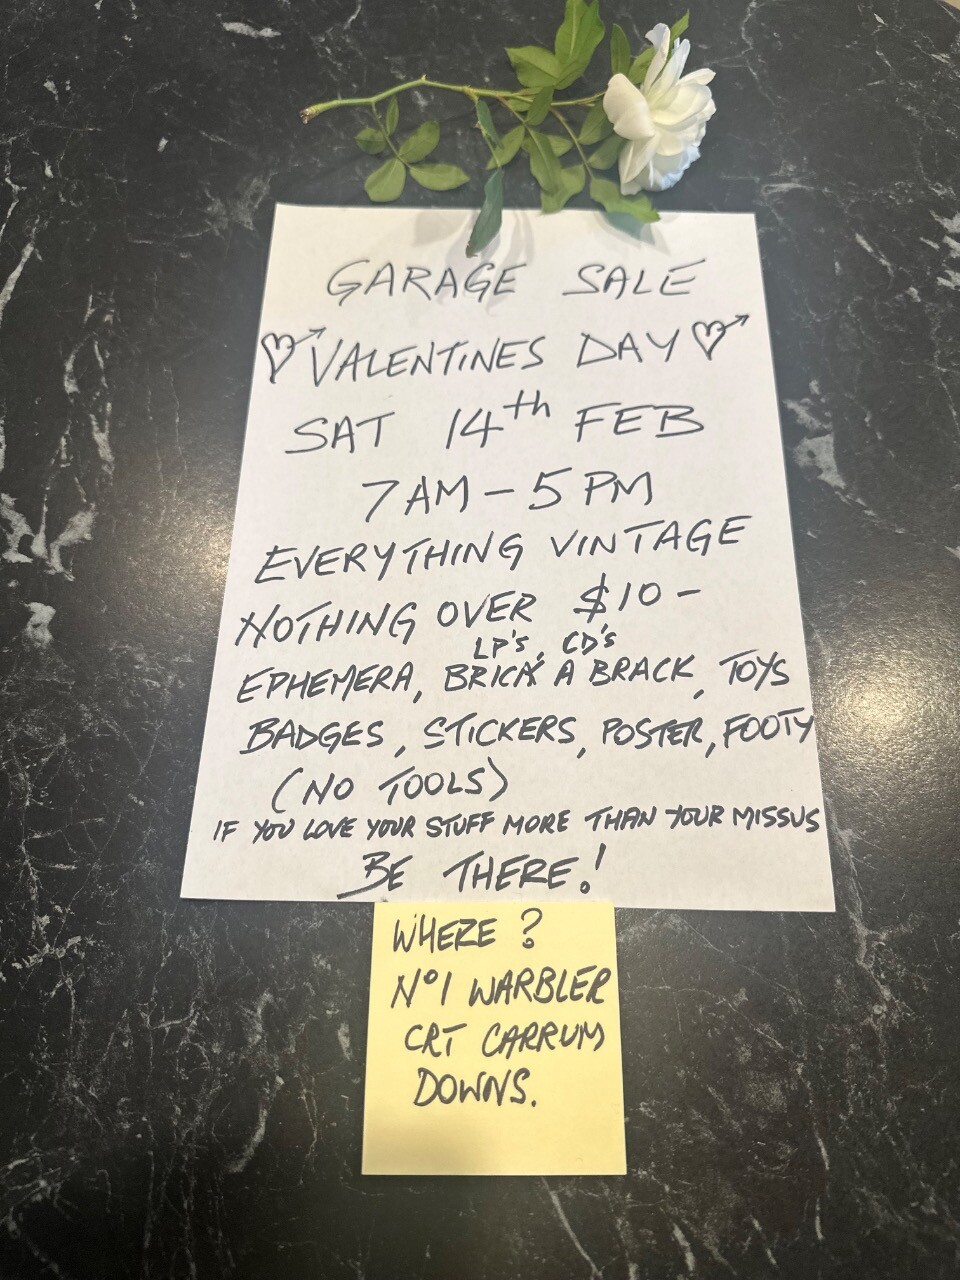 GARAGE SALE
VALENTINES DAY
SAT 14th FEB
7AM - 5PM
EVERYTHING VINTAGE
NOTHING OVER $10 -
LP's, CD's
EPHEMERA, BRICK A BRACK, TOYS
BADGES, STICKERS, POSTER, FOOTY
(NO TOOLS)
IF YOU LOVE YOUR STUFF MORE THAN YOUR MISSUS
BE THERE!
WHERE?
Nº1 WARBLER
CRT CARRUM
DOWNS.